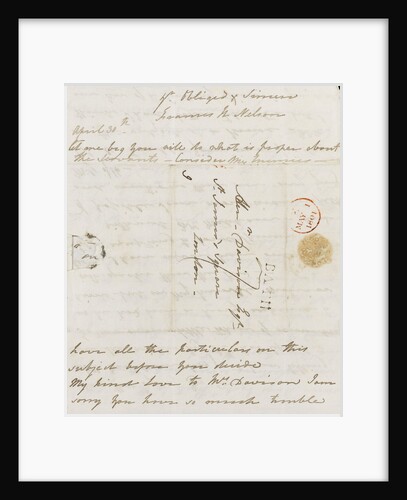 yr Obliged & Sincere
Frances H Nelson
April 30th
Let me beg you will do what is proper about
the Servants - Consider my Incomes
6
Alexr Davison Esqr
St James's Square
London -
BATH
MAY 1
1801
have all the particulars on this
subject before you decide
My kind Love to Mrs Davison I am
sorry you have so much trouble